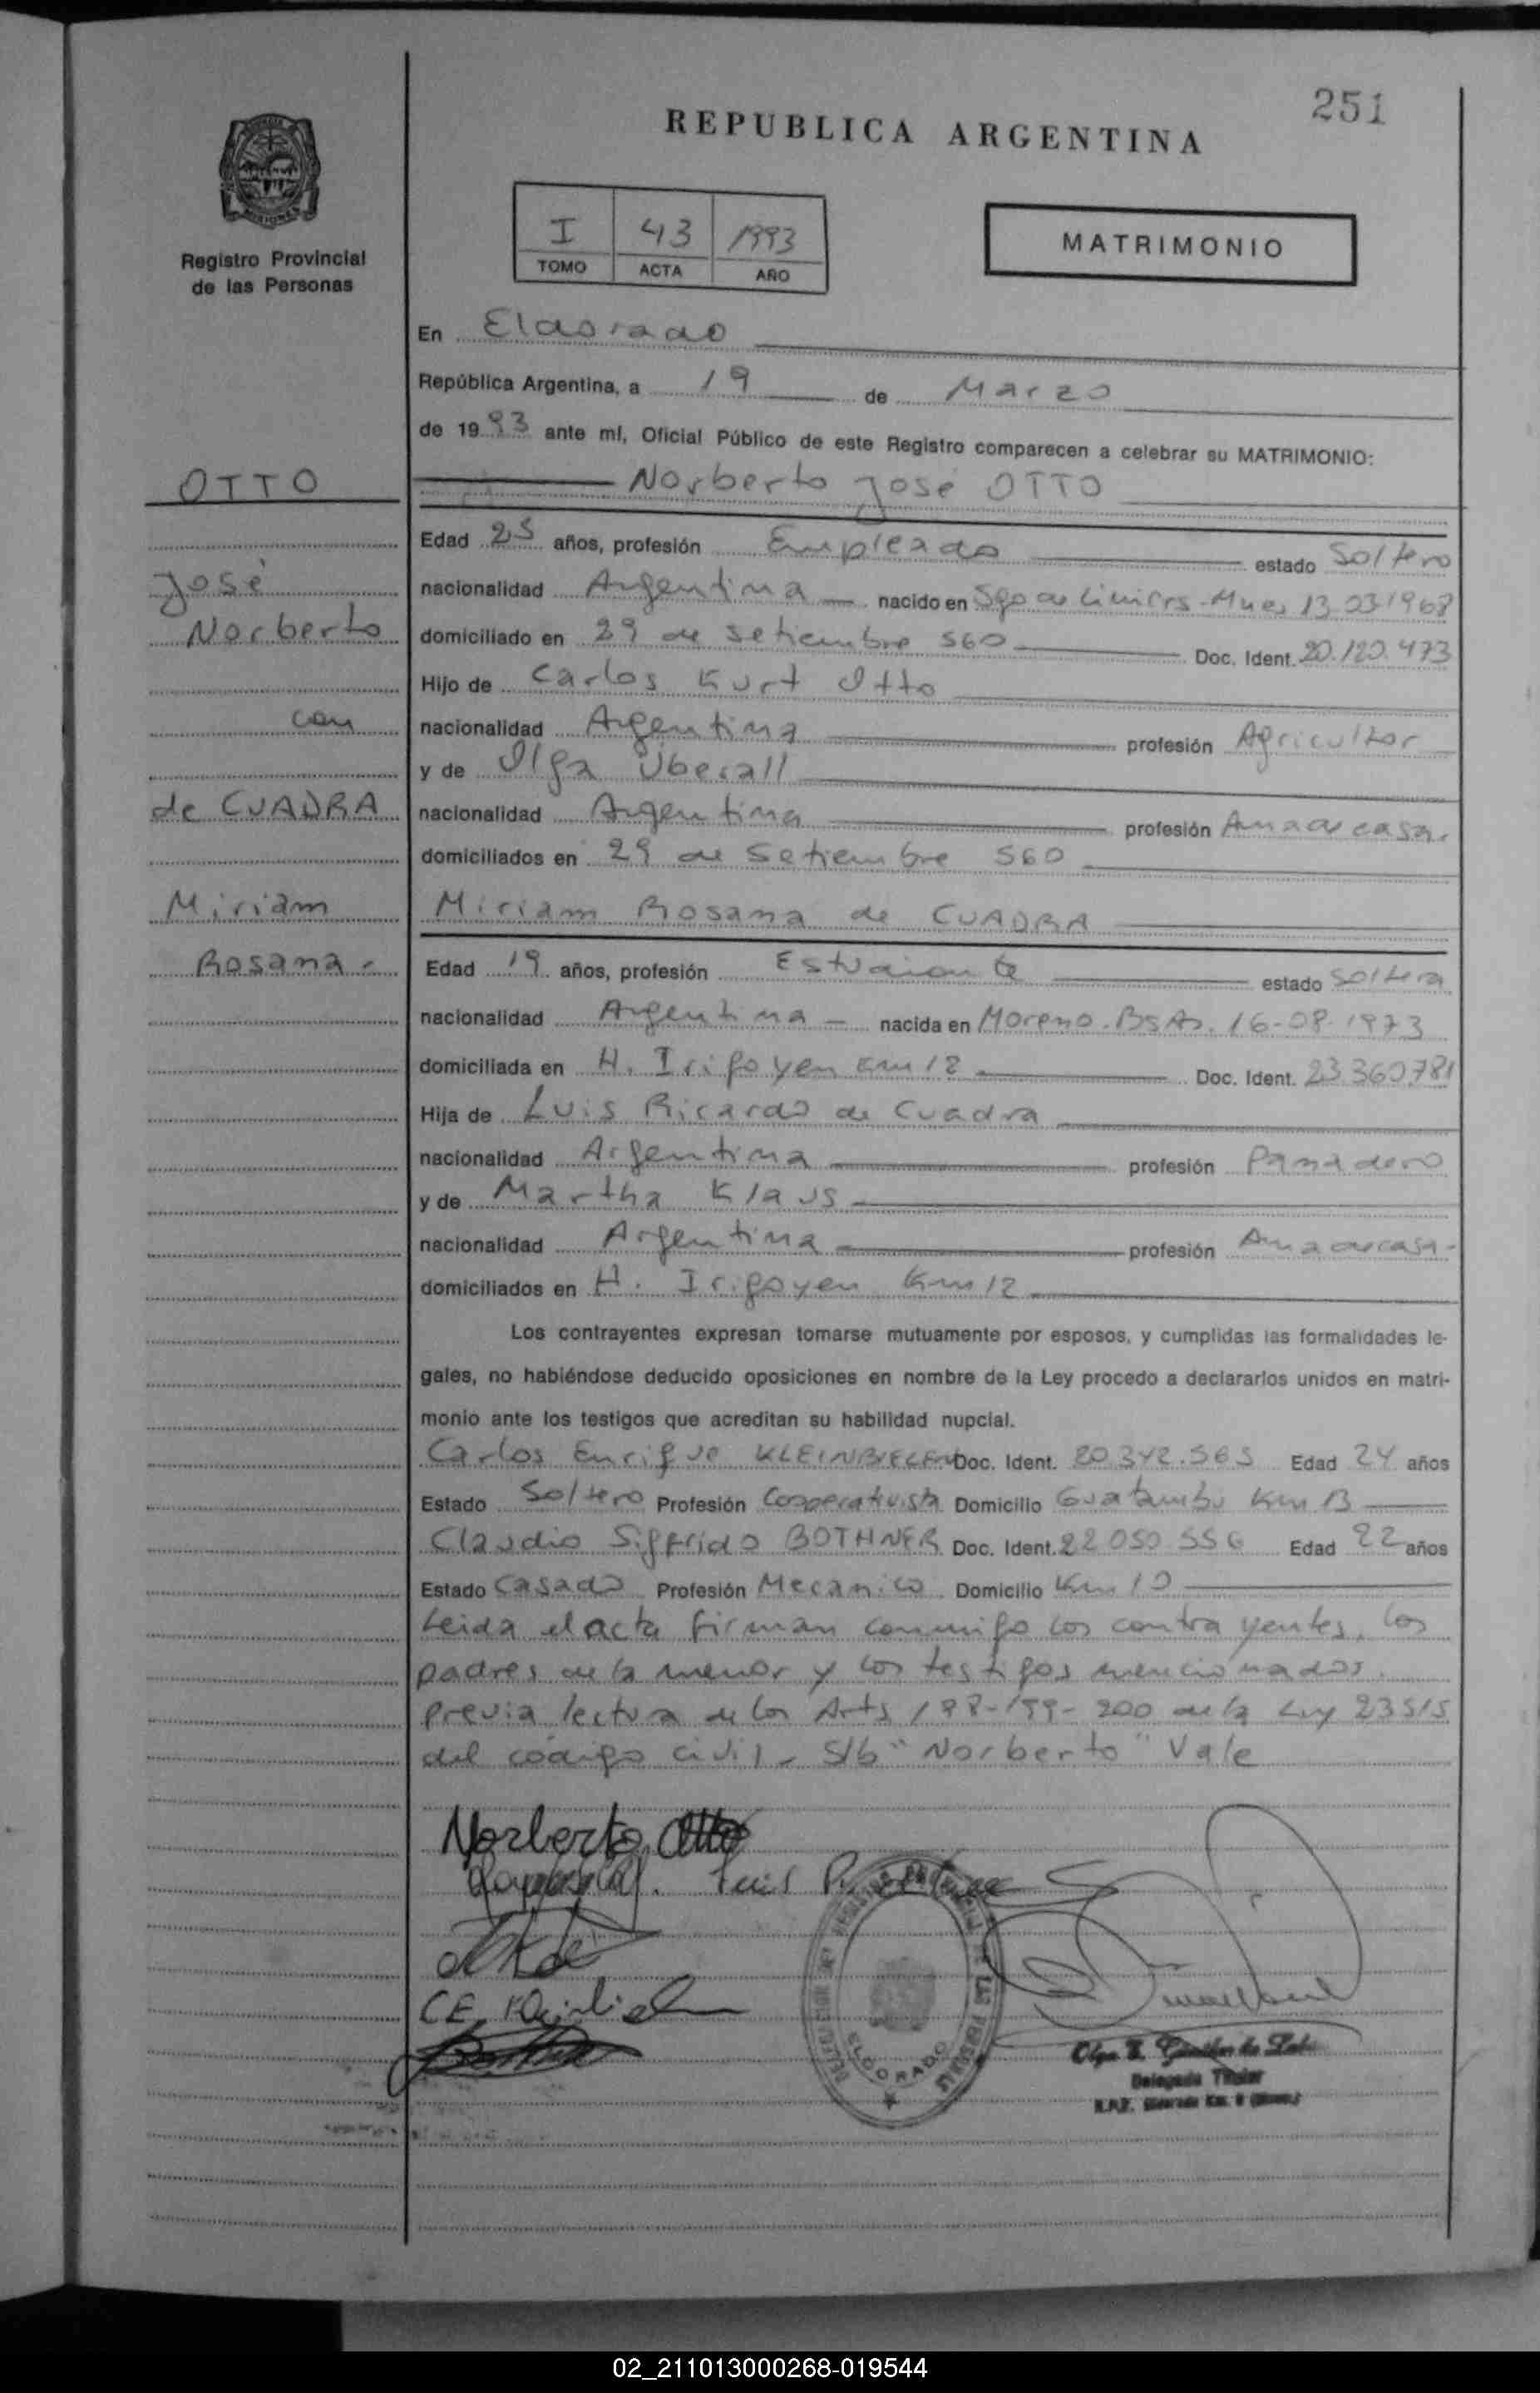 251
REPUBLICA ARGENTINA
MISIONES
Registro Provincial
de las Personas
I 43 1993
TOMO ACTA AÑO
MATRIMONIO
En Eldorado
República Argentina, a 19 de Marzo
de 1993 ante mí, Oficial Público de este Registro comparecen a celebrar su MATRIMONIO:
OTTO
José
Norberto
con
de CUADRA
Miriam
Rosana -
Norberto José OTTO
Edad 25 años, profesión Empleado estado Soltero
nacionalidad Argentina nacido en Sgo de Liniers - Mnes 13-03-1968
domiciliado en 29 de setiembre 560 Doc. Ident. 20.120.473
Hijo de Carlos Kurt Otto
nacionalidad Argentina profesión Agricultor
y de Olga Überall
nacionalidad Argentina profesión Ama de casa.
domiciliados en 29 de setiembre 560
Miriam Rosana de CUADRA
Edad 19 años, profesión Estudiante estado Soltera
nacionalidad Argentina - nacida en Moreno. Bs As. 16-08-1973
domiciliada en H. Irigoyen km 12 Doc. Ident. 23.360.781
Hija de Luis Ricardo de Cuadra
nacionalidad Argentina profesión Panadero
y de Martha Klaus
nacionalidad Argentina profesión Ama de casa -
domiciliados en H. Irigoyen Km 12
Los contrayentes expresan tomarse mutuamente por esposos, y cumplidas las formalidades le-
gales, no habiéndose deducido oposiciones en nombre de la Ley procedo a declararlos unidos en matri-
monio ante los testigos que acreditan su habilidad nupcial.
Carlos Enrique Doc. Ident. 20.342.565 Edad 24 años
Estado Soltero Profesión Cooperativista Domicilio Guatambu Km 13
Claudio Sigfrido BOTHNER Doc. Ident. 22.050.556 Edad 22 años
Estado Casado Profesión Mecanico Domicilio Km 10
Leida el acta firman conmigo los contrayentes, los
padres de la menor y los testigos mencionados.
Previa lectura de los Arts 198-199-200 de la Ley 23515
del código civil - S/b "Norberto" Vale
Norberto Otto
Luis R.
C.E.
ELDORADO
Delegada Titular
02_211013000268-019544